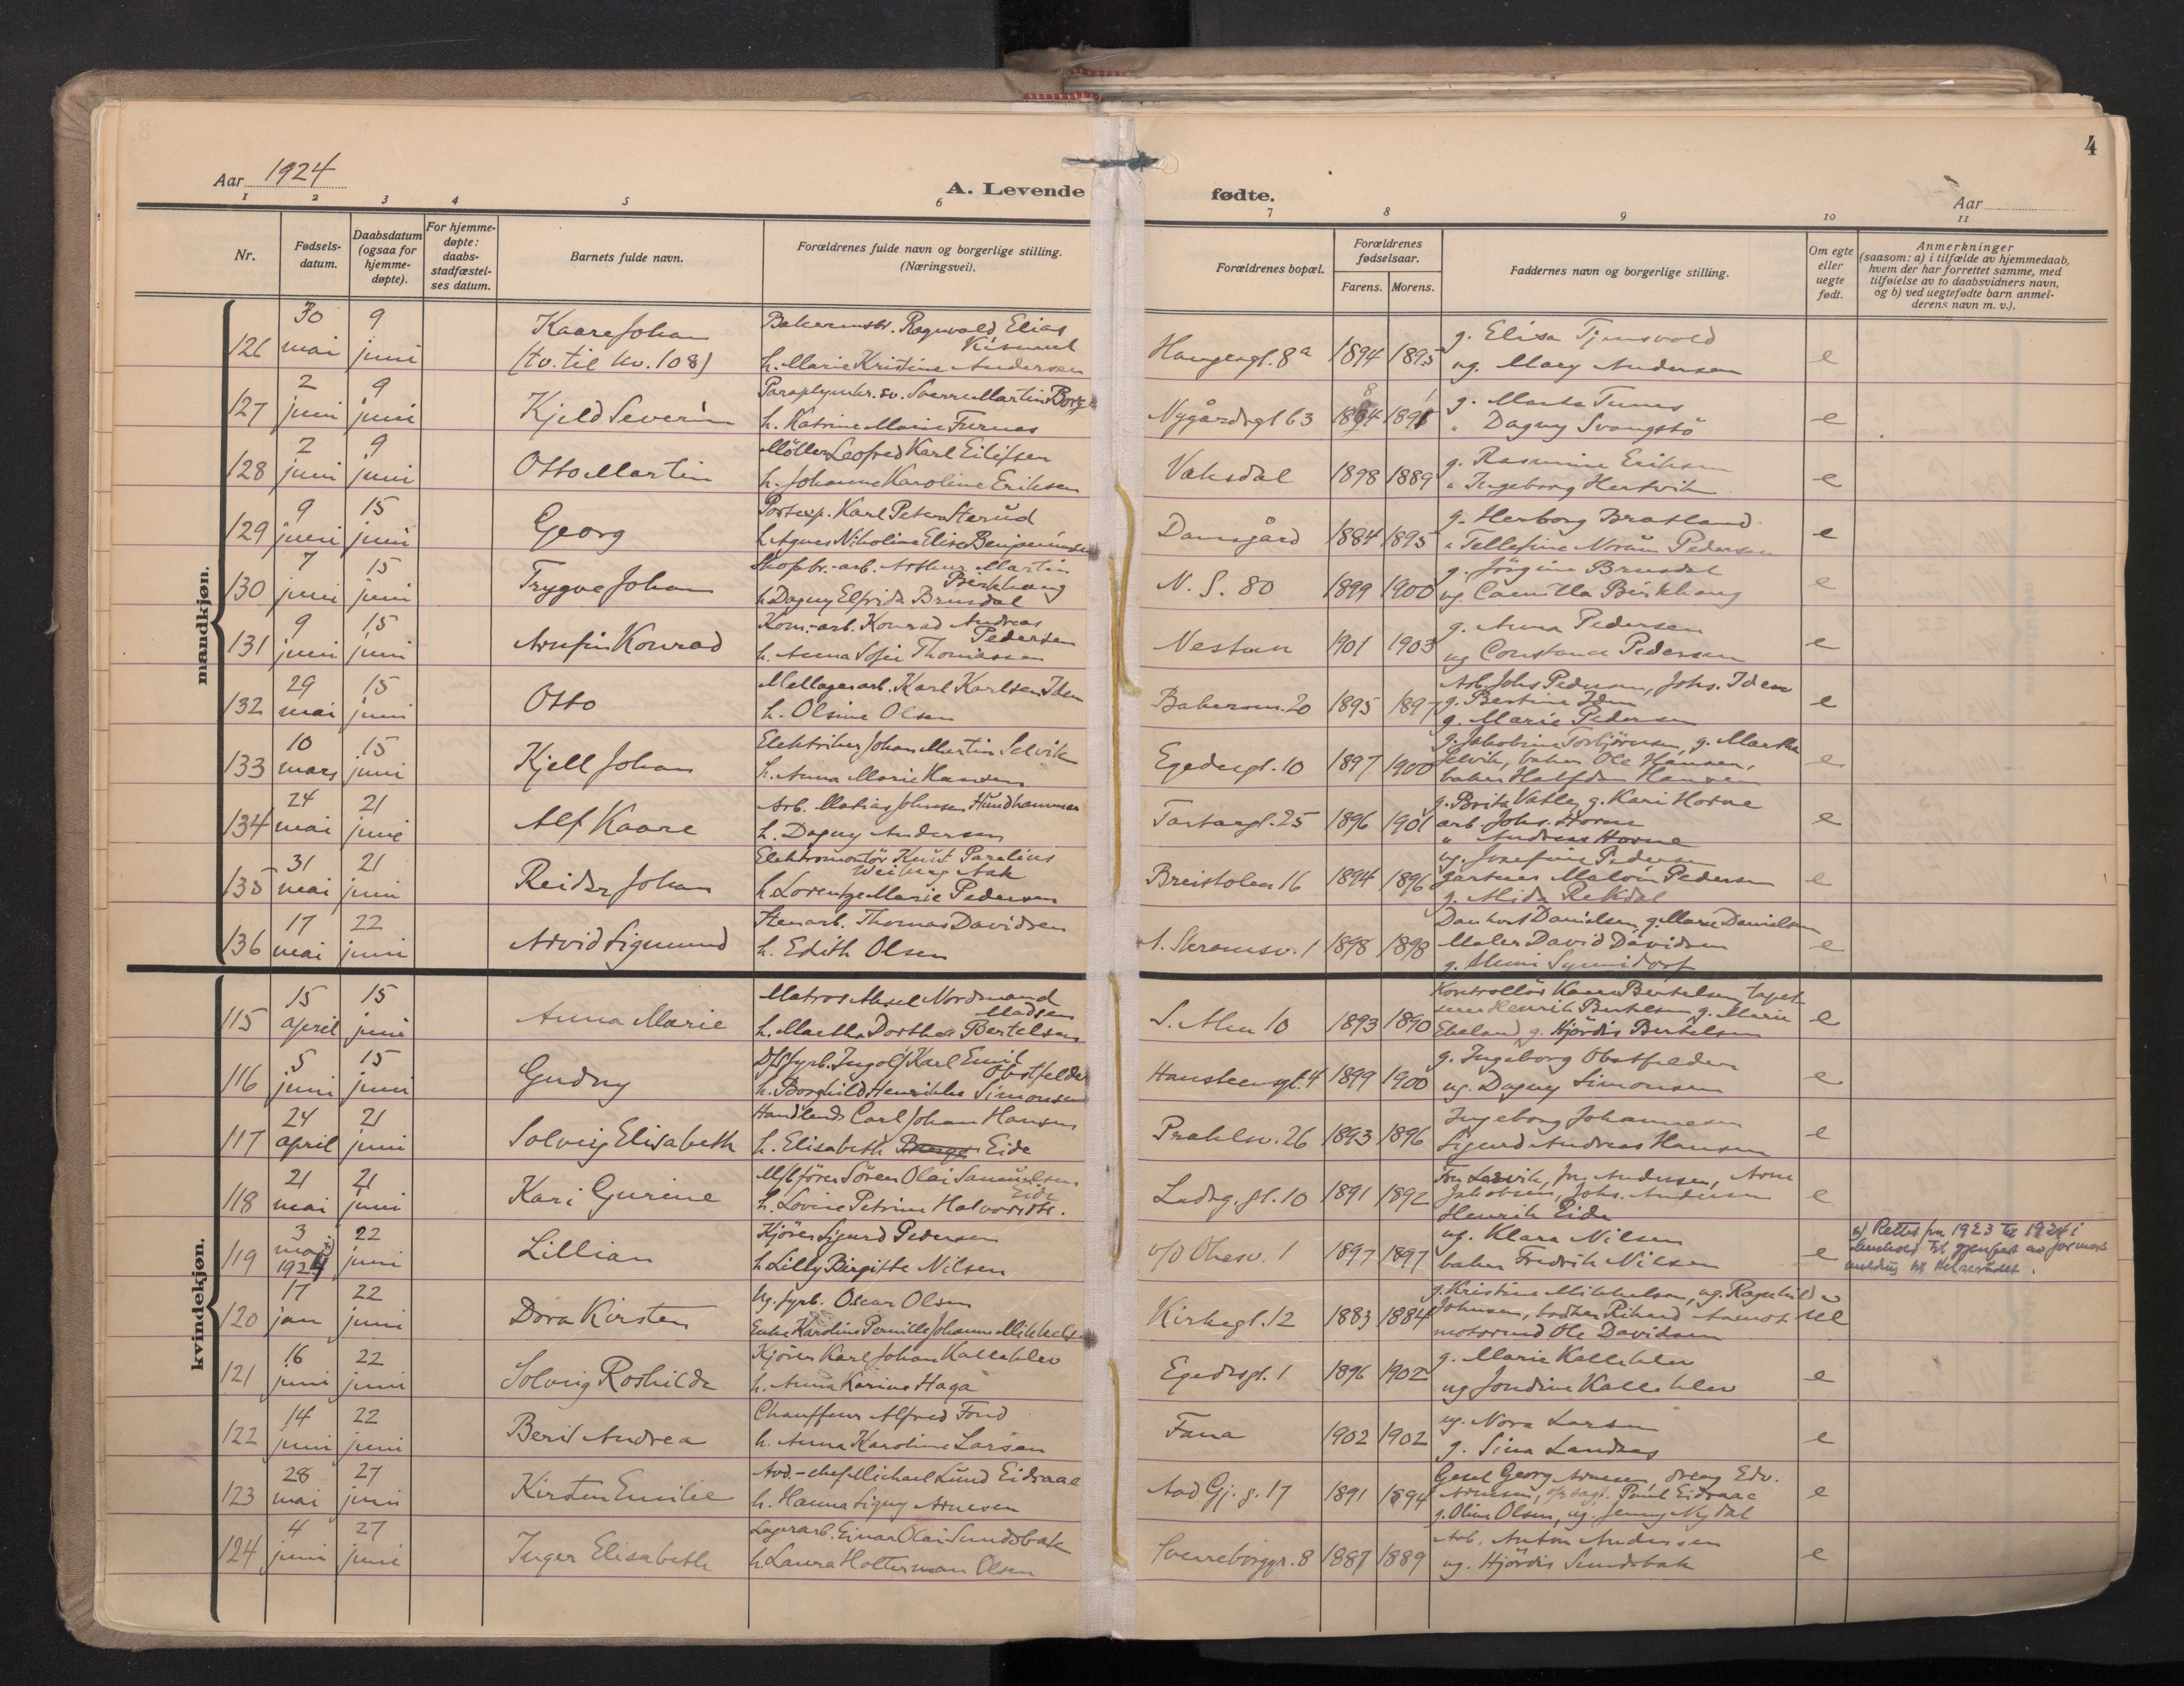 4
Aar 1924
A. Levende fødte.
Aar
1 2 3 4 5 6 7 8 9 10 11
Nr.
Fødsels-
datum.
Daabsdatum
(ogsaa for
hjemme-
døpte).
For hjemme-
døpte:
daabs-
stadfæstel-
ses datum.
Barnets fulde navn.
Forældrenes fulde navn og borgerlige stilling.
(Næringsvei).
Forældrenes bopæl.
Forældrenes
fødselsaar.
Farens. Morens.
Faddernes navn og borgerlige stilling.
Om egte
eller
uegte
født.
Anmerkninger
(saasom: a) i tilfælde av hjemmedaab,
hvem der har forrettet samme, med
tilføielse av to daabsvidners navn,
og b) ved uegtefødte barn anmel-
derens navn m. v.).
mandkjøn.
126 30 mai 9 juni Kaare Johan (tv. til nr. 108)
Bakermstr. Ragnvald Elias
h. Marie Kristine Andersen
Haugesgt. 8a 1894 1895
g. Elisa Tjensvold
ug. Mary Andersen e
127 2 juni 9 juni Kjeld Severin
Paraplymkr. sv. Sverre Martin Borg
h. Katrine Marie Furnes
Nygårdsgt 63
g. Marta Tunes
" Dagny Svangstö e
128 2 juni 9 juni Otto Martin
Møller Leofred Karl Eilifsen
h. Johanne Karoline Eriksen
Vaksdal 1898 1889
g. Rasmine Eriksen
" Ingeborg Hertvik e
129 9 juni 15 juni Georg
Postexp. Karl Peter Sterud
h. Agnes Nikoline Elise Benjaminsen
Damsgård 1884 1895
g. Herborg Bratland
" Tellefine Norum Pedersen e
130 7 juni 15 juni Trygve Johan
Skofabr.-arb. Arthur Martin
Birkhaug
h. Dagny Elfrida Brusdal
N. S. 80 1899 1900
g. Jörgine Brusdal
ug. Camilla Birkhaug e
131 9 juni 15 juni Arnfin Konrad
Kom.-arb. Konrad Andreas
Pedersen
h. Anna Sofie Thomassen
Nestun 1901 1903
g. Anna Pedersen
ug Constance Pedersen e
132 29 mai 15 juni Otto
Mellageraarb. Karl Karlsen Iden
h. Olsine Olsen
Bakersm. 20 1895 1897
Arb. Johs Pedersen, Johs. Iden
g. Bertine Iden
g. Marie Pedersen e
133 10 mars 15 juni Kjell Johan
Elektriker Johan Martin Selvik
h. Anna Marie Hansen
Egedesgt. 10 1897 1900
g. Jakobine Torbjörnsen, g. Martha
Selvik, baker Ole Hansen,
baker Halfdan Hansen e
134 24 mai 21 juni Alf Kaare
Arb. Matias Johnsen Hundhammer
h. Dagny Andersen
Tartargt. 25 1896 1901
g. Brita Vatle, g. Kari Horne
arb. Johs. Horne
" Andreas Horne e
135 31 mai 21 juni Reidar Johan
Elektromontör Knut Parelius
Weiberg Aak
h. Lorentze Marie Pedersen
Breistolen 16 1894 1896
ug. Josefine Pedersen
gartner Malvin Pedersen
g. Alida Rekdal e
136 17 mai 22 juni Arvid Sigmund
Stenarb. Thomas Davidsen
h. Edith Olsen
1898 1898
g. Marie Danielsen
Maler David Davidsen
e
kvindekjøn.
115 15 april 15 juni Anna Marie
Matros Aksel Nordmand
Madsen
h. Martha Dorthea Bertelsen
S. Alm 10 1893 1890
Kontrollör Kaare Bertelsen, tapet-
serer Henrik Bertelsen g. Marie
Ekeland, g. Hjördis Bertelsen e
116 5 juni 15 juni Gudny
Dsfyrb. Ingolf Karl Emil
Obstfelder
h. Borghild Henrikke Simonsen
Hansteensgt. 4 1899 1900
g. Ingeborg Obstfelder
ug. Dagny Simonsen e
117 24 april 21 juni Solveig Elisabeth
Handlende Carl Johan Hansen
h. Elisabeth Eide
Prahlsv. 26 1893 1896
Ingeborg Johannesen
Sigurd Andreas Hansen e
118 21 mai 21 juni Kari Gurine
M/b förer Sören Olai Samuelsen
Eide
h. Lovise Petrine Halvorsdtr.
Ladeg. gt. 10 1891 1892
Fru Ledvik, fru Andersen, Arne
Jakobsen, Johs. Andersen
Henrik Eide e
119 3 mai 1924 22 juni Lillian
Kjörer Sigurd Pedersen
h Lilly Birgitte Nilsen
1 1897 1897
ug. Klara Nilsen
baker Fredrik Nilsen e
a) Rettet fra 1923 til 1924 i
henhold til gjenpart av jormors
melding til Helserådet.
120 17 jan 22 juni Dora Kirsten
Ug. fyrb. Oscar Olsen
Enke Karoline Pernille Johanne Mikkelsen
Kirkegt. 12 1883 1884
g. Kristine Mikkelsen, ug. Ragnhild
Johnsen, Rikard
motormd Ole Davidsen
121 16 juni 22 juni Solveig Roshilda
Kjörer Karl Johan Kalleklev
h. Anna Karine Haga
Egedesgt. 1 1896 1902
g. Marie Kalleklev
ug Jondine Kalleklev e
122 14 juni 22 juni Berit Andrea
Chauffeur Alfred Fond
h. Anna Karoline Larsen
Fana 1902 1902
ug. Nora Larsen
g. Sina Landraas e
123 28 mai 27 juni Kirsten Emilie
Avd.-chef Michael Lund Eidraae
h. Hanna Signy Arnesen
Aad Gj. g. 17 1891 1894
Gesel Georg Arnesen, dreng Edv.
Arnesen, Paul Eidraae
g. Oline Olsen, ug. Jenny Nydal e
124 4 juni 27 juni Inger Elisabeth
Lagerarb. Einar Olai Sundsbak
h. Laura Holterman Olsen
Sverreborggt. 8 1887 1889
Arb. Anton Andersen
ug. Hjördis Sundsbak e